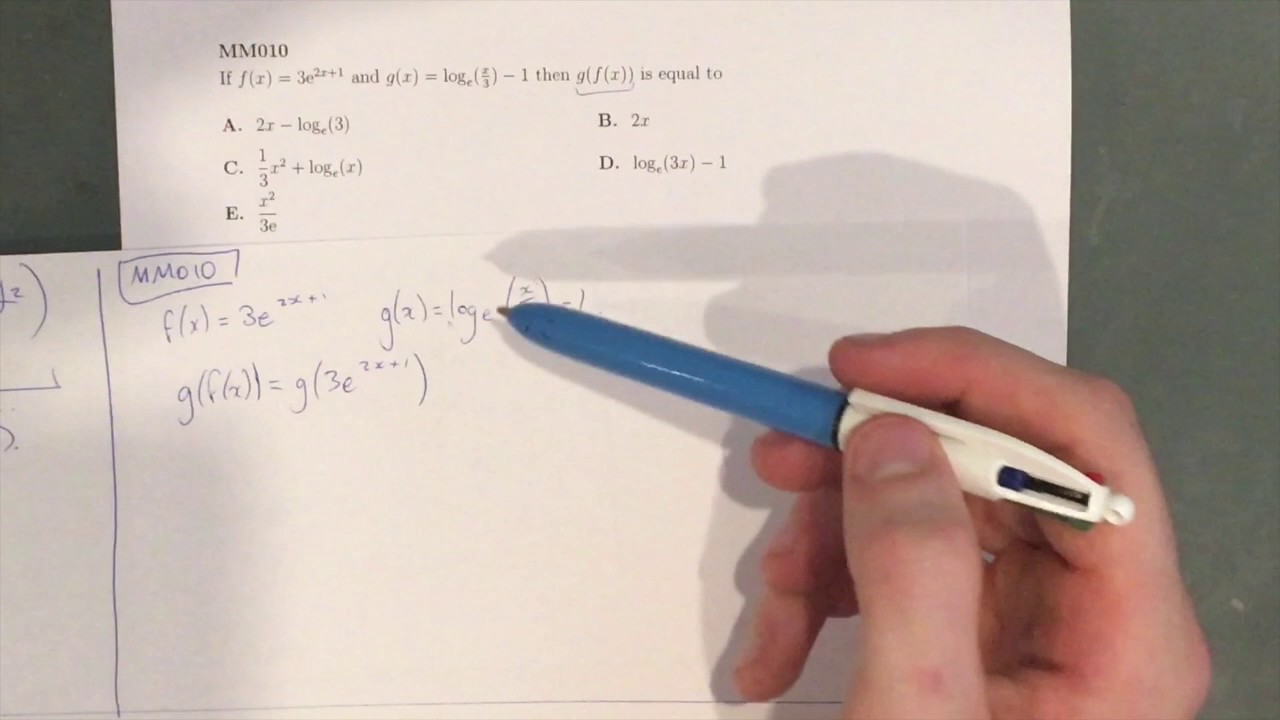 MM010
If f(x) = 3e^{2x+1} and g(x) = log_e(x/3) − 1 then g(f(x)) is equal to
A. 2x − log_e(3)
B. 2x
C. 1/3 x² + log_e(x)
D. log_e(3x) − 1
E. x²/3e
MM010
f(x) = 3e^{2x+1} g(x) = log_e(x
g(f(x)) = g(3e^{2x+1})